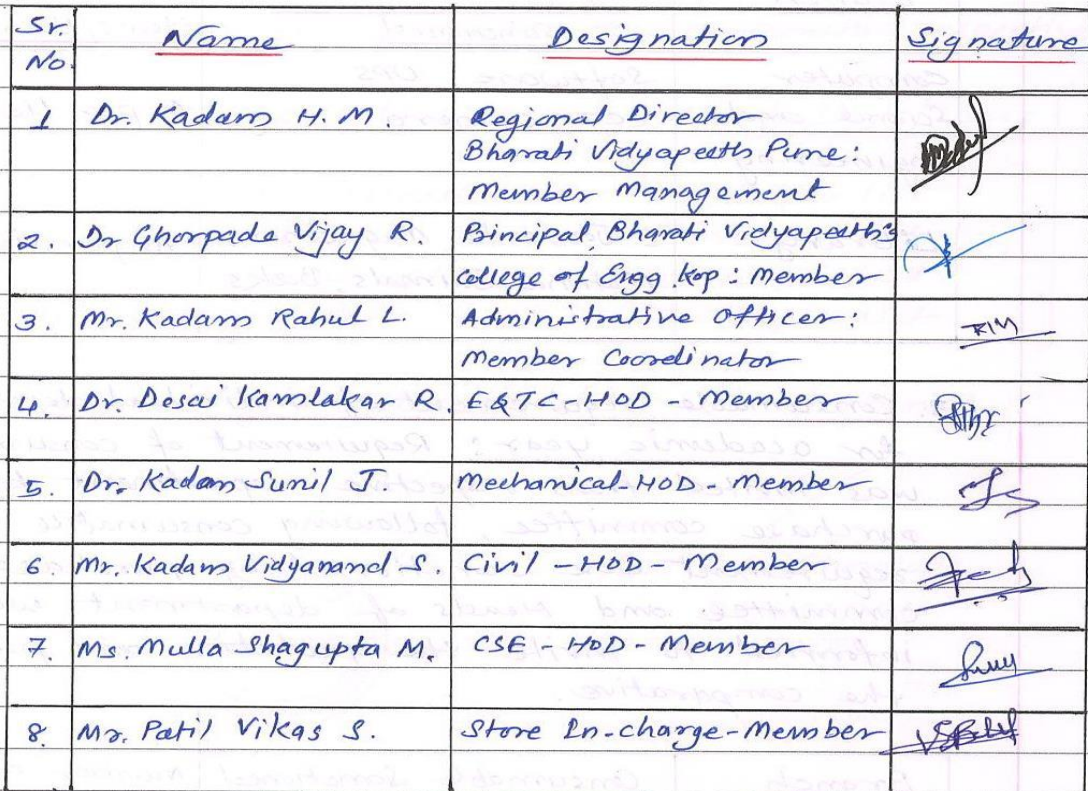 Sr. No. Name Designation Signature
1 Dr. Kadam H. M. Regional Director
Bharati Vidyapeeth Pune:
Member Management
2. Dr Ghorpade Vijay R. Principal, Bharati Vidyapeeth's
College of Engg. Kop: Member
3. Mr. Kadam Rahul L. Administrative Officer:
Member Coordinator
4. Dr. Desai Kamlakar R. E&TC-HOD - Member
5. Dr. Kadam Sunil J. Mechanical-HOD-Member
6. Mr. Kadam Vidyanand S. Civil - HOD - Member
7. Ms. Mulla Shagupta M. CSE - HOD - Member
8. Mr. Patil Vikas S. Store In-charge-Member